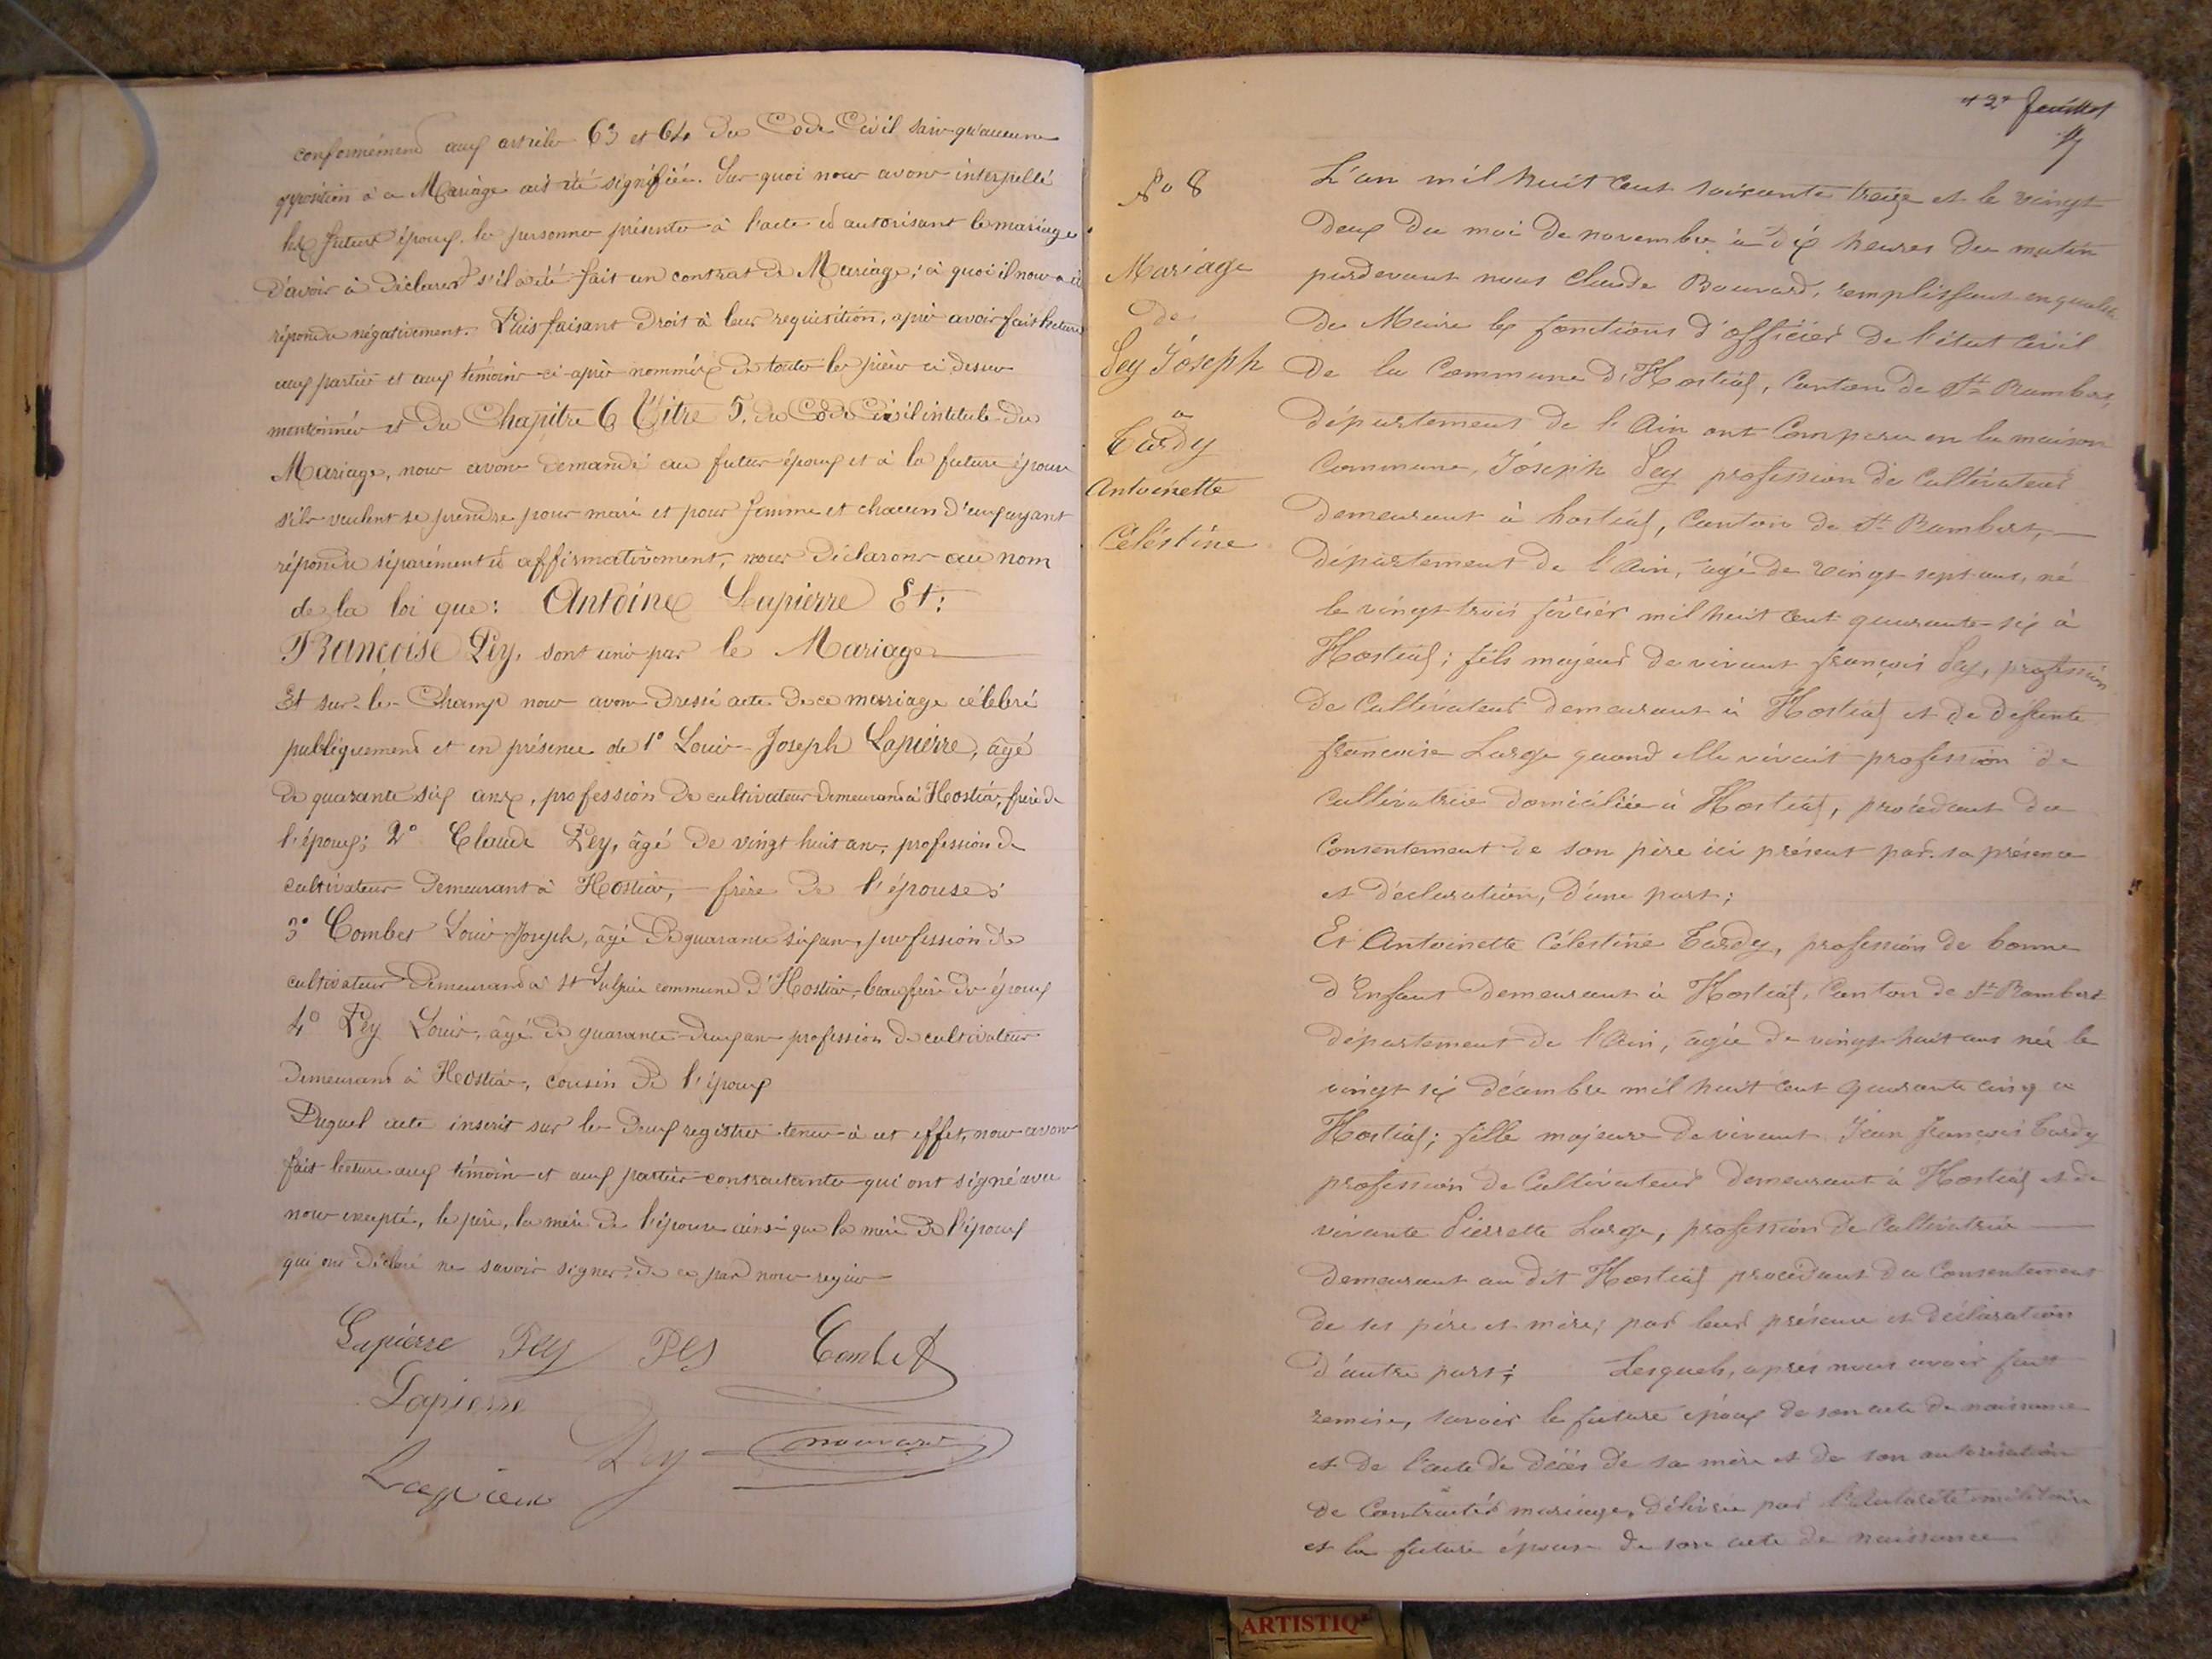 conformément aux articles 63 et 64 du Code Civil sans qu'aucune
opposition à ce Mariage ait été signifiée. Sur quoi nous avons interpellé
les futurs époux, les personnes présentes à l'acte et autorisant le mariage
d'avoir à déclarer s'il a été fait un contrat de Mariage; à quoi il nous a été
répondu négativement. Puis faisant droit à leur requisition, après avoir fait lecture
aux parties et aux témoins ci-après nommés de toutes les pièces ci dessus
mentionnées et du Chapitre 6 Titre 5. du Code Civil intitulé du
Mariage, nous avons demandé au futur époux et à la future épouse
s'ils veulent se prendre pour mari et pour femme et chacun d'eux ayant
répondu séparément et affirmativement, nous déclarons au nom
de la loi que: Antoine Lapierre Et:
Françoise Pey, sont unis par le Mariage
Et sur-le-Champ nous avons dressé acte de ce mariage célébré
publiquement et en présence de 1° Louis-Joseph Lapierre, âgé
de quarante six ans, profession de cultivateur demeurant à Hostias, frère de
l'époux; 2° Claude Pey, âgé de vingt huit ans, profession de
cultivateur demeurant à Hostias, frère de l'épouse;
3° Combet Louis-Joseph, âgé de quarante six ans, profession de
cultivateur demeurant à St Sulpice commune d'Hostias, beau frère de époux
4° Pey Louis, âgé de quarante-deux ans profession de cultivateur
demeurant à Hostias, cousin de l'époux
Duquel acte inscrit sur les deux registres tenus à cet effet, nous avons
fait lecture aux témoins et aux parties contractantes qui ont signé avec
nous excepté, le père, la mère de l'épouse ainsi que la mère de l'époux
qui ont déclaré ne savoir signer de ce par nous requis
Lapierre Pey Pey Combet
Lapierre
Pey Bouvard
Lapierre
12e feuillet
N° 8
Mariage
de
Pey Joseph
à
Tardy
Antoinette
Célestine
L'an mil huit cent soixante treize et le vingt
deux du moi de novembre à dix heures du matin
pardevant nous Claude Bouvard, remplissant en qualité
de Maire les fonctions d'officier de l'état Civil
de la Commune d'Hostias, Canton de St Rambert,
département de l'Ain ont Comparu en la maison
Commune, Joseph Pey profession de Cultivateur
demeurant à hostias, Canton de St Rambert,
département de l'Ain, agé de vingt sept ans, né
le vingt trois février mil huit cent quarante-six à
Hostias; fils majeur de vivant françois Pey, profession
de Cultivateur demeurant à Hostias et de defunte
francoise Large quand elle vivait profession de
Cultivatrice domiciliée à Hostias, procédant du
Consentement de son père ici présent par sa présence
et déclaration, d'une part;
Et Antoinette Célestine Tardy, profession de bonne
d'Enfant demeurant à Hostias, Canton de St Rambert
département de l'Ain, agée de vingt-huit ans née le
vingt six décembre mil huit cent quarante cinq a
Hostias; fille majeure de vivant Jean françois Tardy
profession de Cultivateur demeurant à Hostias et de
vivante Pierrette Large, profession de Cultivatrice
demeurant au dit Hostias procédant du Consentement
de ses père et mère; par leur présence et déclaration
d'autre part; Lesquels, après nous avoir fait
remise, savoir le future époux de son acte de naissance
et de l'acte de décès de sa mère et de son autorisation
de Contracter mariage, délivrée par l'autorité militaire
et la future épouse de son acte de naissance
ARTISTIQ